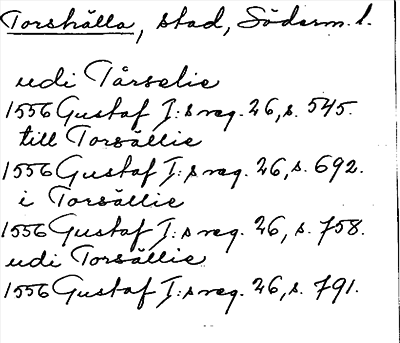 Torshälla, stad, Söderm. l.
udi Tårselie
1556 Gustaf I:s reg. 26, s. 545.
till Torsällie
1556 Gustaf I:s reg. 26, s. 692.
i Torsällie
1556 Gustaf I:s reg. 26, s. 758.
udi Torsällie
1556 Gustaf I:s reg. 26, s. 791.